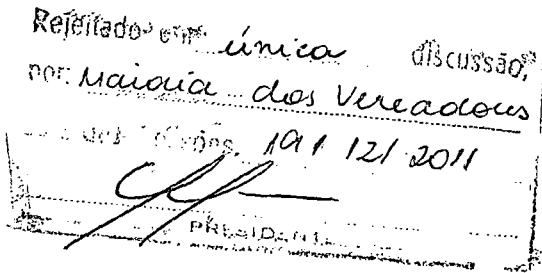 Rejeitado em única discussão,
por: Maioria dos Vereadores
das Sessões, 19 / 12 / 2011
PRESIDENTE